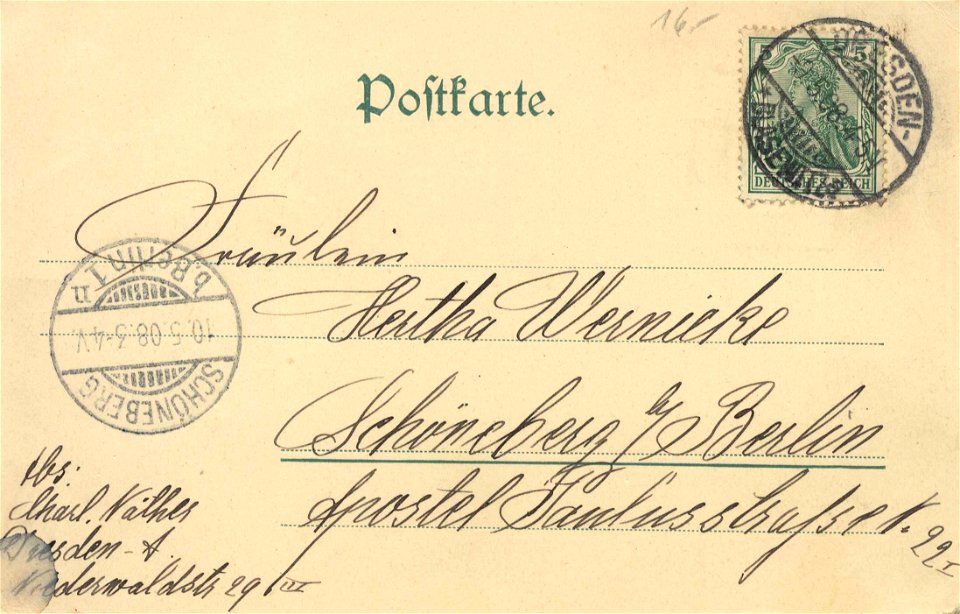 16.-
Postkarte.
DRESDEN-
BLASEWITZ
5
DEUTSCHES REICH
Fräulein
Hertha Wernicke
Schöneberg b/ Berlin
Apostel Paulusstrasse N. 22 I
b. Berlin 1
10.5.08.3-4V.
SCHÖNEBERG
Abs:
Charl. Käther
Dresden-A.
Niederwaldstr 29 III